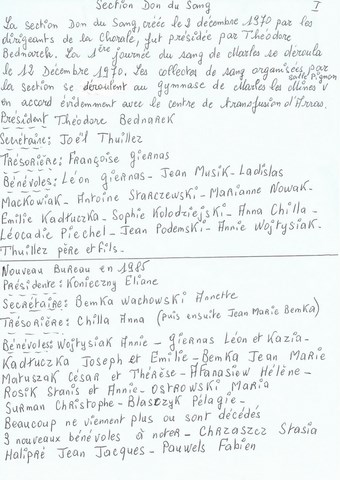 Section Don du Sang
I
La section Don du Sang, créée le 2 décembre 1970 par les
dirigeants de la Chorale, fut présidée par Théodore
Bednarek. La 1ère journée du sang de Marles se déroula
le 12 Décembre 1970. Les collectes de sang organisées par
salle Pignon
la section se déroulent au gymnase de Marles les Mines v
en accord évidemment avec le centre de transfusion d'Arras.
Président Théodore Bednarek
Secrétaire: Joël Thuillez
Trésorière: Françoise Giernas
Bénévoles: Léon Giernas - Jean Musik - Ladislas
Mackowiak - Antoine Starczewski - Marianne Nowak -
Emilie Kadłuczka - Sophie Kolodziejski - Anna Chilla -
Léocadie Piechel - Jean Podemski - Annie Wojtysiak -
Thuillez père et fils.
Nouveau Bureau en 1985
Présidente: Konieczny Eliane
Secrétaire: Bemka Wachowski Annette
Trésorière: Chilla Anna (puis ensuite Jean Marie Bemka)
Bénévoles: Wojtysiak Annie - Giernas Léon et Kazia -
Kadłuczka Joseph et Emilie - Bemka Jean Marie
Matuszak César et Thérèse - Afanasiew Hélène -
Rosik Stanis et Annie - Ostrowski Maria
Surman Christophe - Blaszczyk Pélagie -
Beaucoup ne viennent plus ou sont décédés
3 nouveaux bénévoles à noter - Chrzaszcz Stasia
Halipré Jean Jacques - Pauwels Fabien